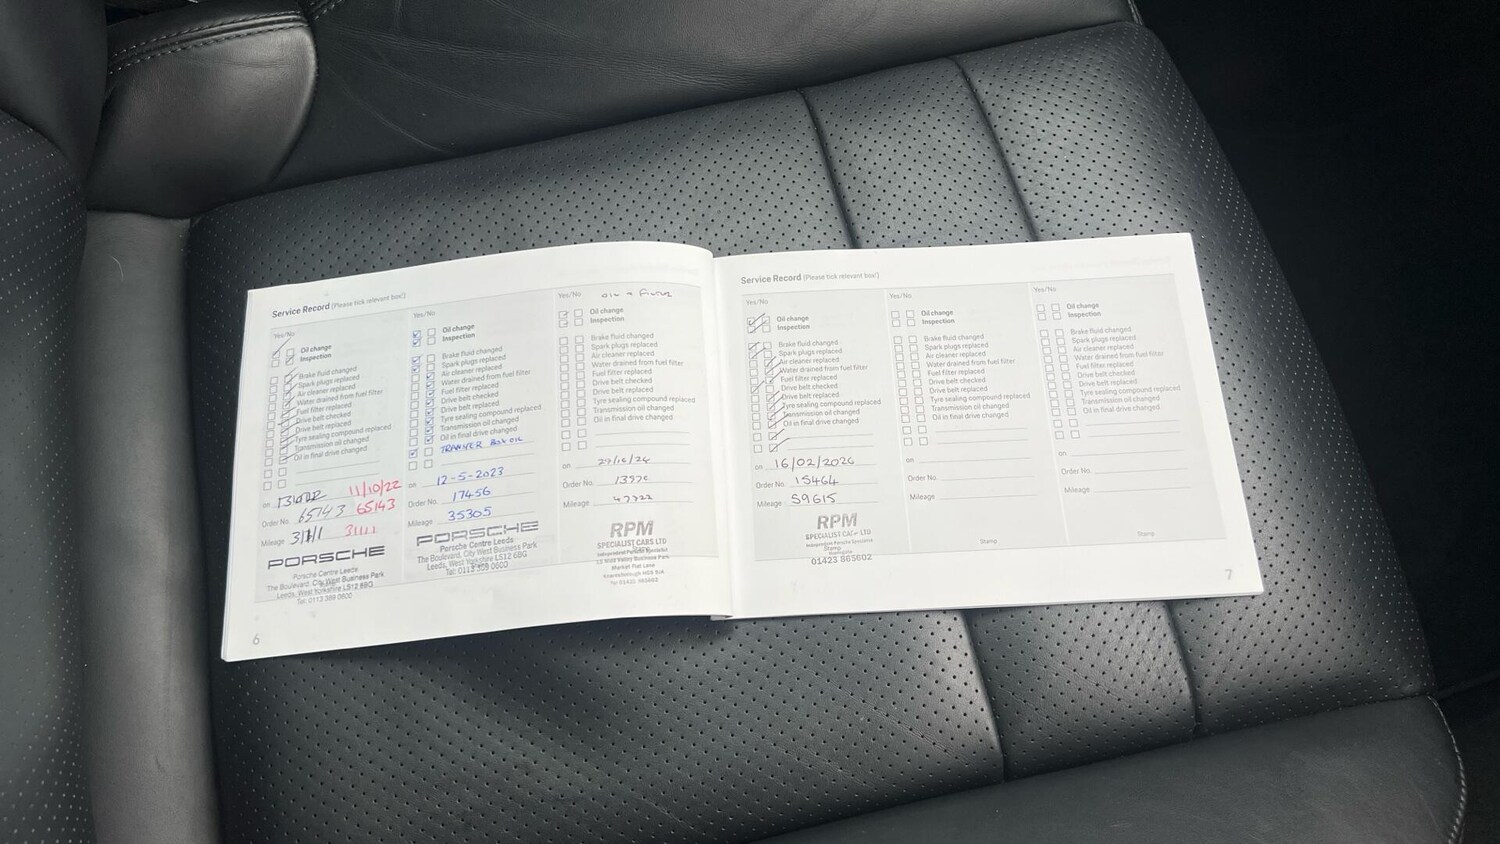 Service Record (Please tick relevant box!)
Yes/No
Oil change
Inspection
Brake fluid changed
Spark plugs replaced
Air cleaner replaced
Water drained from fuel filter
Fuel filter replaced
Drive belt checked
Drive belt replaced
Tyre sealing compound replaced
Transmission oil changed
Oil in final drive changed
on 11/10/22
Order No. 65143 65143
Mileage 31111
PORSCHE
Porsche Centre Leeds
The Boulevard, City West Business Park
Leeds, West Yorkshire LS12 6BG
Tel: 0113 389 0600
6
Yes/No
Oil change
Inspection
Brake fluid changed
Spark plugs replaced
Air cleaner replaced
Water drained from fuel filter
Fuel filter replaced
Drive belt checked
Drive belt replaced
Tyre sealing compound replaced
Transmission oil changed
Oil in final drive changed
TRANSFER BOX OIL
on 12-5-2023
Order No. 17456
Mileage 35305
PORSCHE
Porsche Centre Leeds
The Boulevard, City West Business Park
Leeds, West Yorkshire LS12 6BG
Tel: 0113 389 0600
Yes/No OIL + FILTER
Oil change
Inspection
Brake fluid changed
Spark plugs replaced
Air cleaner replaced
Water drained from fuel filter
Fuel filter replaced
Drive belt checked
Drive belt replaced
Tyre sealing compound replaced
Transmission oil changed
Oil in final drive changed
on
Order No.
Mileage
RPM
SPECIALIST CARS LTD
Independent Porsche Specialist
Market Flat Lane
Service Record (Please tick relevant box!)
Yes/No
Oil change
Inspection
Brake fluid changed
Spark plugs replaced
Air cleaner replaced
Water drained from fuel filter
Fuel filter replaced
Drive belt checked
Drive belt replaced
Tyre sealing compound replaced
Transmission oil changed
Oil in final drive changed
on 16/02/2026
Order No. 15464
Mileage 59615
RPM
SPECIALIST CARS LTD
Independent Porsche Specialist
Stamp
01423 865602
Yes/No
Oil change
Inspection
Brake fluid changed
Spark plugs replaced
Air cleaner replaced
Water drained from fuel filter
Fuel filter replaced
Drive belt checked
Drive belt replaced
Tyre sealing compound replaced
Transmission oil changed
Oil in final drive changed
on
Order No.
Mileage
Stamp
Yes/No
Oil change
Inspection
Brake fluid changed
Spark plugs replaced
Air cleaner replaced
Water drained from fuel filter
Fuel filter replaced
Drive belt checked
Drive belt replaced
Tyre sealing compound replaced
Transmission oil changed
Oil in final drive changed
on
Order No.
Mileage
Stamp
7